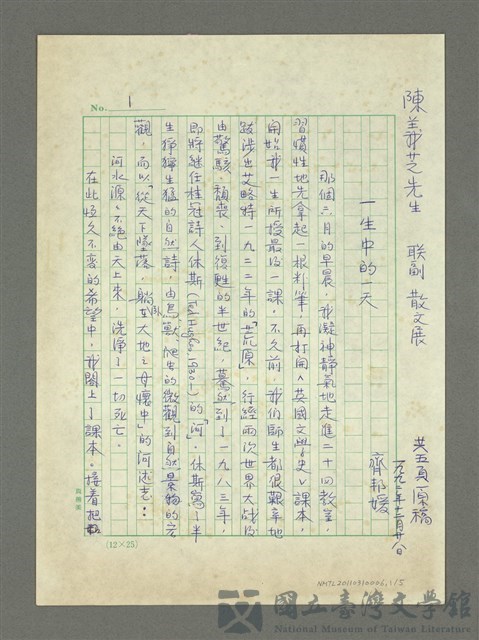 陳義芝先生 聯副 散文展
共五頁原稿
一九九二年十二月廿八日
齊邦媛
一生中的一天
那個六月的早晨，我凝神靜氣地走進二十四教室，
習慣性地先拿起一根粉筆，再打開《英國文學史》課本，
開始我一生所授最後一課，不久前，我們師生都很艱辛地
跋涉過艾略特一九二二年的「荒原」，行經兩次世界大戰後
由驚駭、頹喪、到復甦的半世紀，驀然到了一九八三年，
即將繼任桂冠詩人休斯（Ted Hughes, 1930-）的「河」，休斯寫了半
生猙獰生猛的自然詩，由鳥獸、爬虫的微觀到自然景物的宏
觀，而以「從天下墜落，躺臥大地之母懷中」的河述志：
河水源源不絕由天上來，洗淨了一切死亡。
在此恆久不變的希望中，我閤上了課本。接着把
No. 1
（12×25）
NMTL20110910006,1/5
國立臺灣文學館
National Museum of Taiwan Literature